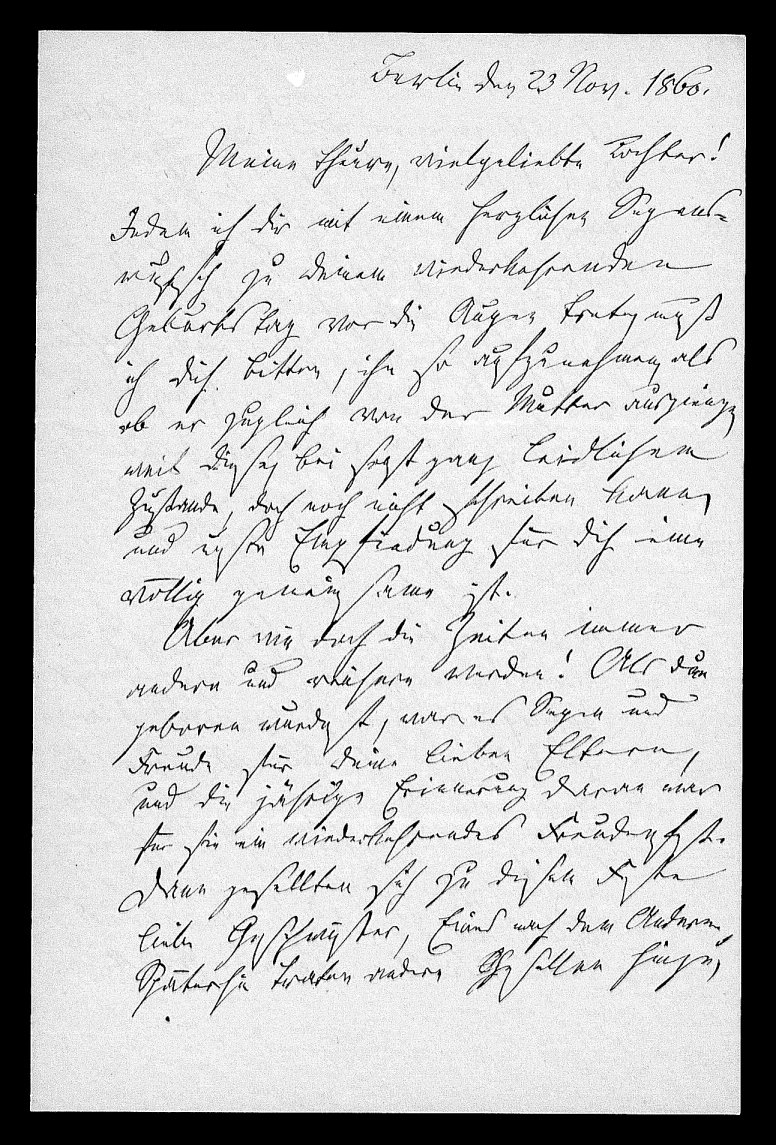 Berlin den 23 Nov. 1860.
Meine theure, vielgeliebte Tochter!
Indem ich dir mit einem herzlichen Segens-
wunsch zu deinem wiederkehrenden
Geburtstag vor die Augen trete, muß
ich dich bitten, ihn so aufzunehmen, als
ob er zugleich von der Mutter ausginge,
weil diese, bei jetzt ganz leidlichem
Zustande, doch noch nicht schreiben kann,
und unsre Empfindung für dich eine
völlig gemeinsame ist.
Aber wie doch die Zeiten immer
andere und reichere werden! Als du
geboren wurdest, war es Segen und
Freude für deine lieben Eltern,
und die jährige Erinnerung daran war
für sie ein wiederkehrendes Freudenfest.
Dann gesellten sich zu diesem Feste
liebe Geschwister, Eines nach dem Andern,
Späterhin traten andere Gesellen hinzu,